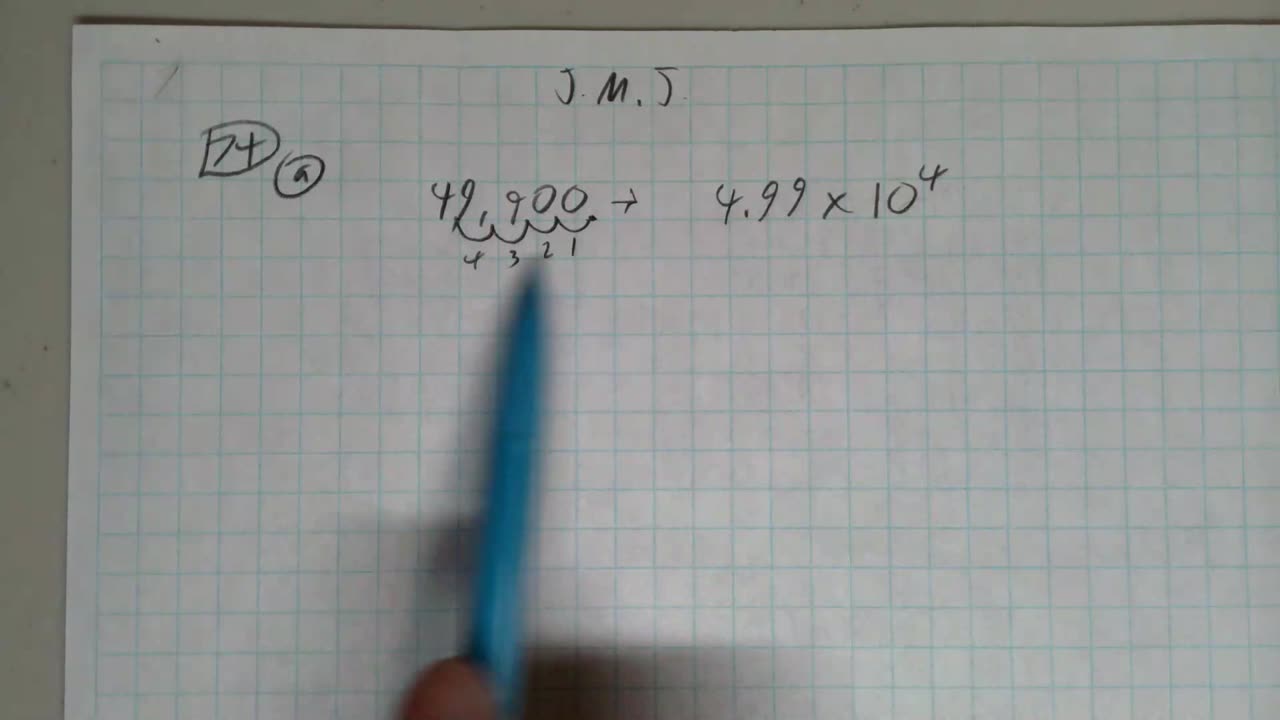 J. M. J.
74 a
49,900. → 4.99 × 10⁴
4 3 2 1